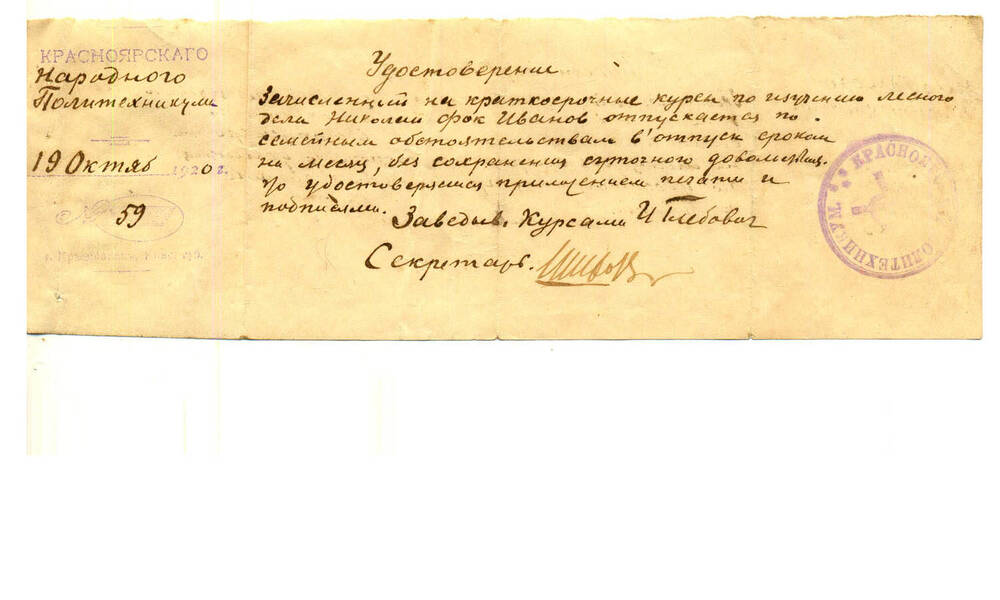 КРАСНОЯРСКАГО
Народного
Политехникума
19 Октяб 1920 г.
№ 59
г. Красноярск, Енис. губ.
Удостоверение
Зачисленный на краткосрочные курсы по изучению лесного
дела Николай Фок Иванов отпускается по
семейным обстоятельствам в отпуск сроком
на месяц, без сохранения суточного довольствия.
удостоверяется приложением печати и
подписями.
Заведыв. Курсами И Глебович
Секретарь.
КРАСНОЯ
ПОЛИТЕХНИКУМ